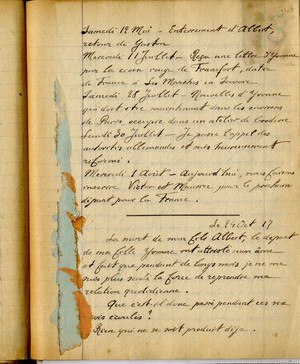 Samedi 12 Mai - Enterrement d'Albert,
retour de Gaston
Mercredi 11 Juillet - Reçu une lettre d'Yvonne
par la croix rouge de Francfort, datée
de France à Les Marches en Savoie.
Samedi 28 Juillet - Nouvelles d'Yvonne
qui doit être maintenant dans les environs
de Paris, occupée dans un atelier de
Lundi 30 Juillet - Je passe l'appel des
autorités allemandes et suis heureusement
réformé.
Mercredi 1 Août - Aujourd'hui, nous faisons
inscrire Victor et Maurice pour le prochain
départ pour la France.
Le 24 Oct 17
La mort de mon fils Albert, le départ
de ma fille Yvonne ont attristé mon âme
et fait que pendant de longs mois je ne me
suis plus senti la force de reprendre ma
relation quotidienne.
Que s'est-il donc passé pendant ces
mois écoulés ?
Rien qui ne se soit produit déjà.